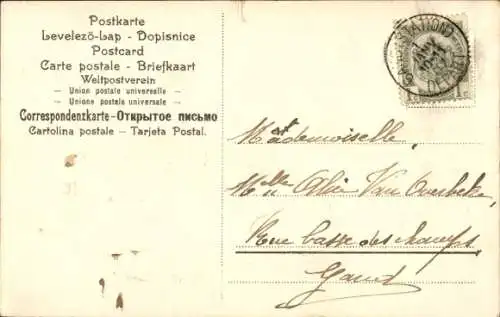 Postkarte
Levelező-Lap - Dopisnice
Postcard
Carte postale - Briefkaart
Weltpostverein
– Union postale universelle –
– Unione postale universale –
Correspondenzkarte-Открытое письмо
Cartolina postale – Tarjeta Postal.
STATION
Mademoiselle,
Melle Van Overbeke,
Rue basse des champs,
Gand